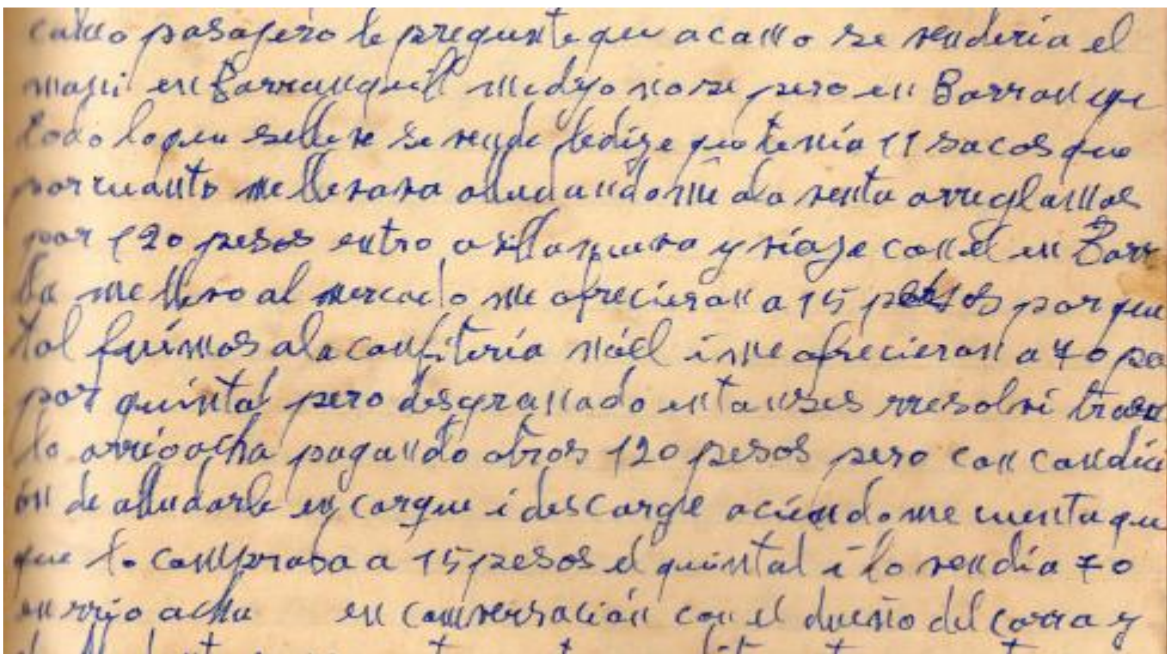 como pasajero le pregunte que a camo se venderia el
mani en Barranquill me dijo no se pero en Barranqui
todo lo que selleve se vende ledige que tenía 11 sacos que
por cuanto me llevava alludandome a la venta arreglamos
por 120 pesos entro a villanueva y viaje con el en Barr
lla me llevo al mercado me ofrecieron a 15 pesos por quin
tal fuimos ala confitería nóel i me ofrecieron a 70 pe
por quintal pero desgranado entonses rresolvi traer
lo arrioacha pagando otros 120 pesos pero con condici
ón de alludarle en cargue i descarge aciendome cuenta que
que lo compraba a 15 pesos el quintal i lo vendia 70
en rrio acha en conversación con el dueño del carra y